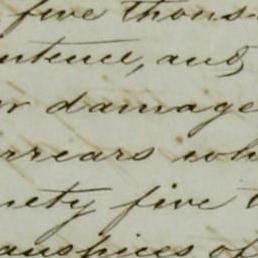 five thous
ntence, and
or damage
rrears wh
nety five t
auspices of